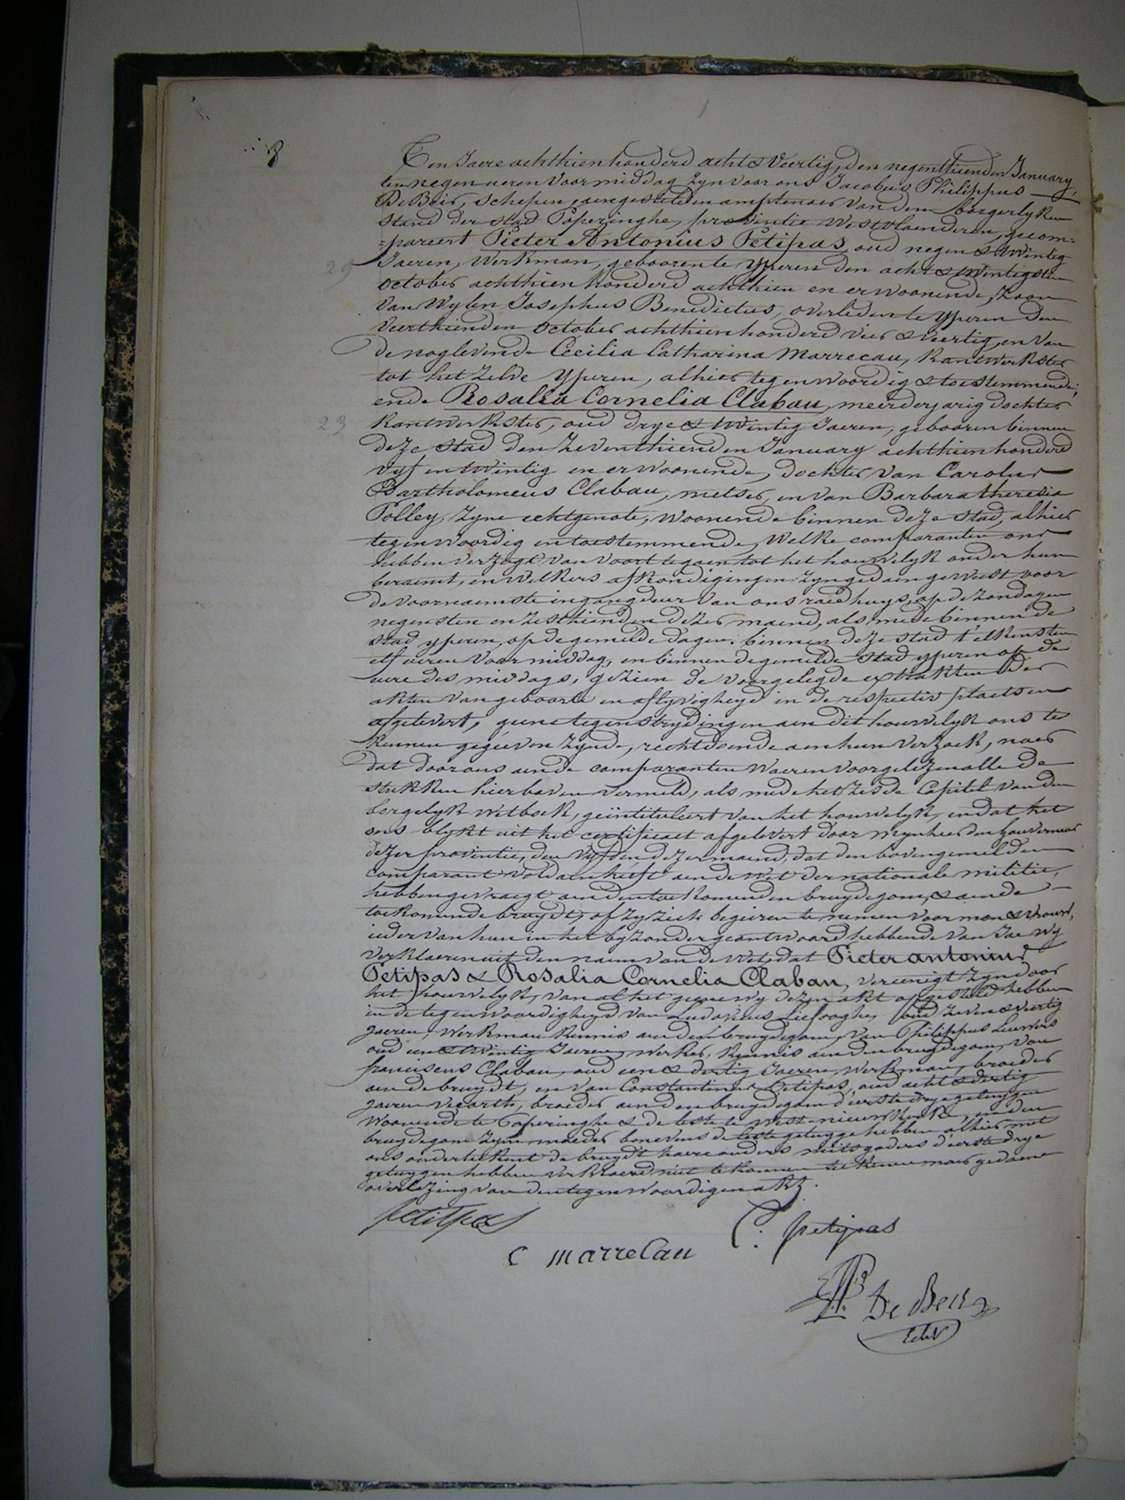 8
Ten Jaere achthien honderd acht & Veertig, den negenthienden January
ten negen ueren Voormiddag zyn voor ons Jacobus Philippus
De Beir, Schepen, aengestelden amptenaer van den borgerlyken
stand der stad Poperinghe, provintie Westvlaenderen, gecom-
-pareert Pieter Antonius Petipas, oud negen & twintig
29
Jaeren, Werkman, geboorente Yperen den acht & twintigsten
october achthien honderd achthien en er woonende, zoon
van Wylen Josephus Benedictus, overleden te Yperen den
veerthienden October achthien honderd vier & veertig, en van
de noglevende Cecilia Catharina Marrecau, kantwerkster
tot het zelve Yperen, alhier tegenwoordig & toestemmende;
ende Rosalia Cornelia Clabau, meerderjarig dochter
23
kantwerkster, oud drye & twintig Jaeren, gebooren binnen
deze stad den zeventhienden January achthien honderd
vyf en twintig en er woonende, dochter van Carolus
Bartholomeus Clabau, metser, en van Barbara theresia
Polley, zyne echtgenote, woonende binnen deze stad, alhier
tegenwoordig en toestemmende, Welke comparanten ons
hebben verzogt van voort te gaen tot het houwelyk onder hun
beraemt, en welkers afkondigingen zyn gedaen geweest voor
de voornaemste ingangdeur van ons raedhuys, op de zondagen
negensten en zesthienden dezer maend, als mede binnen de
stad yperen, op de gemelde dagen; binnen deze stad t'elkensten
elf ueren voormiddag, en binnen de gemelde stad yperen op de
uere des middags, gezien de voorgelegde extrakten der
akten van geboorte en aflyvigheyd in de respectiv plaetsen
afgelevert, geene tegenstrydingen aen dit houwelyk ons te
kennen gegeeven zynde, rechtdoende aen hun verzoek, naer
dat door ons aen de comparanten waeren voorgelezen alle de
stukken hierboven vermeld, als mede het zesde Capitel van den
borgelyk wetboek, geïntituleert van het houwelyk, en dat het
ons blykt uit het certificaet afgelevert door mynheer den Gouverneur
dezer provintie, den vyfden dezer maend, dat den bovengemelden
comparant voldaen heeft aen de Wet der nationale militie,
hebben gevraegt aen den toekomenden bruydegom, & aen de
toekomende bruydt, of zy zich begeeren te nemen voor man & vrouw,
ieder van hun in het byzonder geantwoord hebbende van Jae wy
verklaeren uit den naem van de Wet, dat Pieter antonius
Petipas & Rosalia Cornelia Clabau, vereenigt zyn door
het houwelyk, van al het geene wy dezen akt opgesteld hebben
in de tegenwoordigheyd van Ludovicus oud zeven & veertig
Jaeren, Werkman kennis aen den bruydegom, van Philippus
oud een & twintig Jaeren, werker, kennis aen den bruydegom, van
franciscus Clabau, oud een & dertig Jaeren, werkman, broeder
aen de bruydt, en van Constantinus Petipas, oud acht & dertig
Jaeren broeder aen den bruydegom d'eerste drye getuygen
woonende te Poperinghe & de leste te West-nieuwkerke, en den
bruydegom zyne moeder benevens de leste getuyge hebben alhier met
ons onderteekent de bruydt haere ouders mitsgaders d'eerste drye
getuygen hebben verklaerd niet te konnen teekenen naer gedaene
overlezing van den tegenwoordigen akt.
petitpas
C. petipas
C marrecau
De Beir